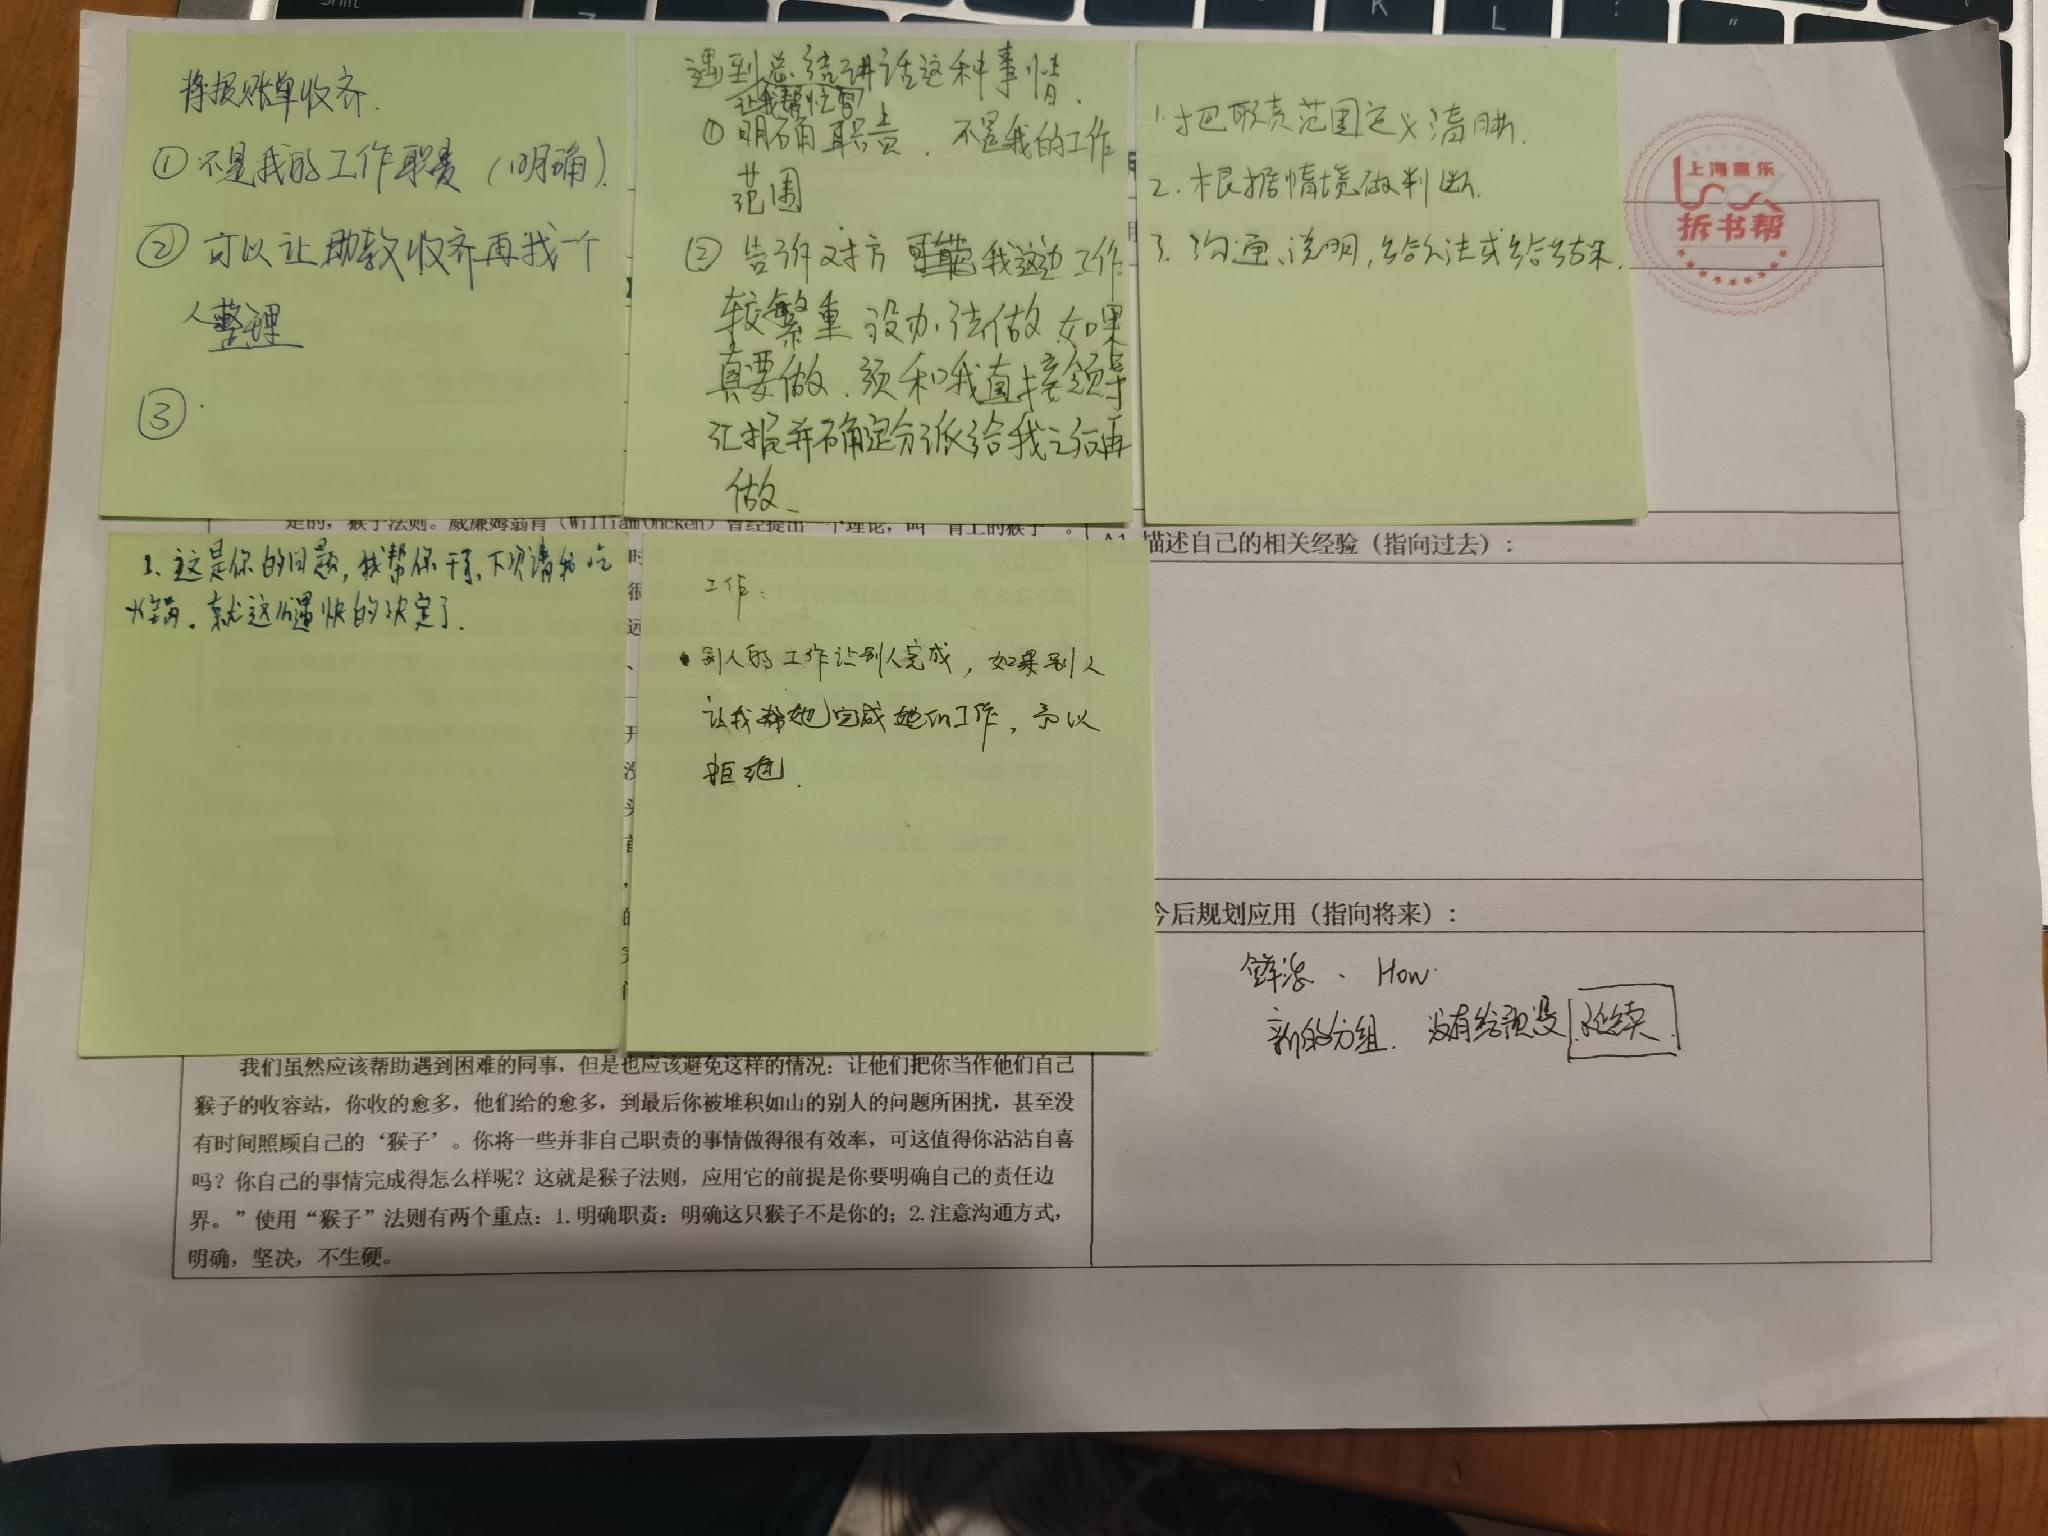 将报账单收齐.
① 不是我的工作职责（明确）.
② 可以让助教收齐再找一个
人整理
③
遇到总结讲话这种事情.
让我帮忙写
① 明确职责. 不是我的工作
范围
② 告诉对方 我这边工作
较繁重 没办法做 如果
真要做. 须和我直接领导
汇报并确定分派给我之后再
做
1. 把职责范围定义清晰.
2. 根据情境做判断.
3. 沟通、说明, 给办法或给结果.
上海喜乐
拆书帮
是的，猴子法则。威廉姆翁肯（William Oncken）曾经提出一个理论，叫“背上的猴子”。
1. 这是你的问题, 我帮你干了, 下次请我吃
火锅. 就这么愉快的决定了.
工作:
别人的工作让别人完成, 如果别人
让我帮她完成她们工作, 予以
拒绝.
描述自己的相关经验（指向过去）：
今后规划应用（指向将来）：
How
新的分组. 没有给预设 延续
我们虽然应该帮助遇到困难的同事，但是也应该避免这样的情况：让他们把你当作他们自己
猴子的收容站，你收的愈多，他们给的愈多，到最后你被堆积如山的别人的问题所困扰，甚至没
有时间照顾自己的‘猴子’。你将一些并非自己职责的事情做得很有效率，可这值得你沾沾自喜
吗？你自己的事情完成得怎么样呢？这就是猴子法则，应用它的前提是你要明确自己的责任边
界。”使用“猴子”法则有两个重点：1.明确职责：明确这只猴子不是你的；2.注意沟通方式，
明确，坚决，不生硬。